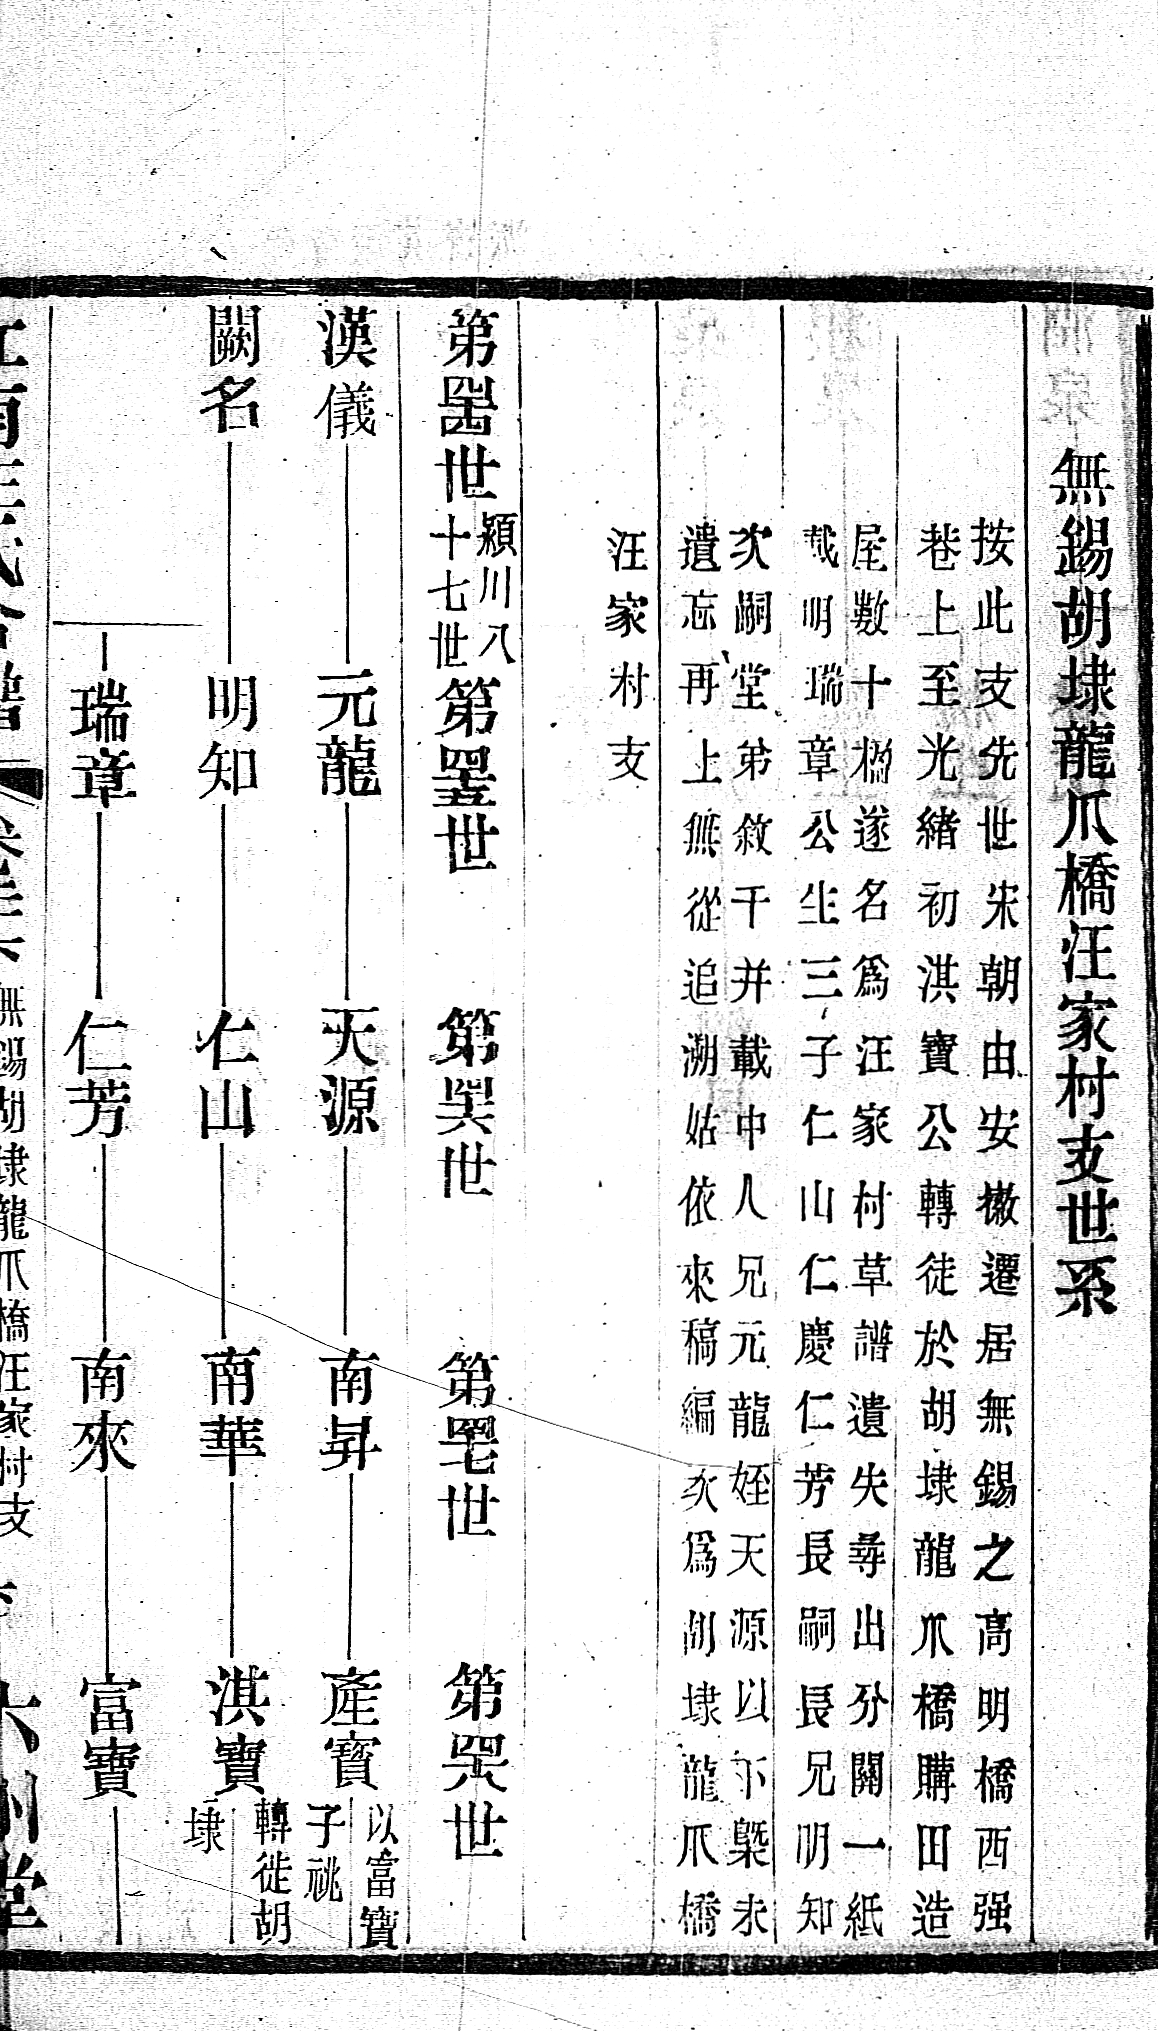 無錫胡埭龍爪橋汪家村支世系
按此支先世宋朝由安徽遷居無錫之高明橋西强
巷上至光緒初淇寶公轉徙於胡埭龍爪橋購田造
屋數十楹遂名爲汪家村草譜遺失尋出分關一紙
載明瑞章公生三子仁山仁慶仁芳長嗣長兄明知
次嗣堂弟敘干并載中人兄元龍姪天源以下槩未
遺忘再上無從追溯姑依來稿編次爲胡埭龍爪橋
汪家村支
第四十四世 潁川八十七世 第四十五世 第四十六世 第四十七世 第四十八世
漢儀 元龍 天源 南昇 產寶 以富寶子祧
闕名 明知 仁山 南華 淇寶 轉徙胡埭
瑞章 仁芳 南來 富寶
無錫胡埭龍爪橋汪家村支